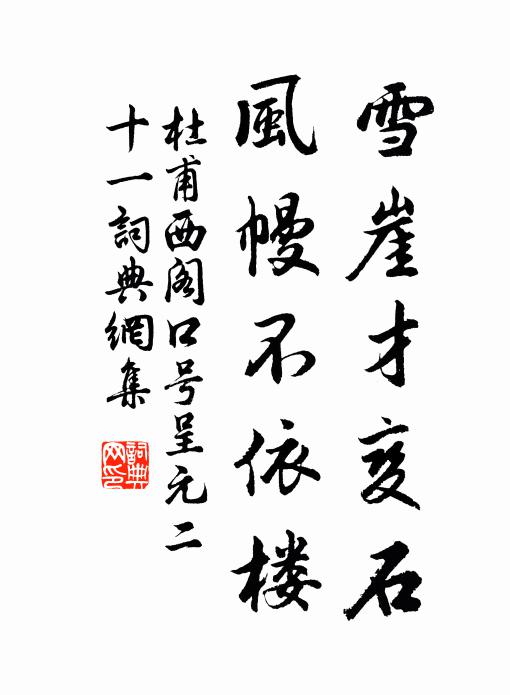 雪崖才变石
風幔不依楼
杜甫西阁口号呈元二
十一詞典網集
詞典
网印